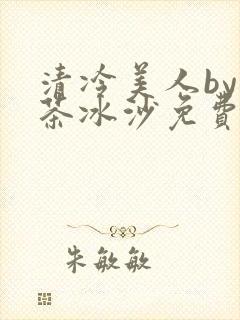 清冷美人by
茶冰沙免費
朱敏敏